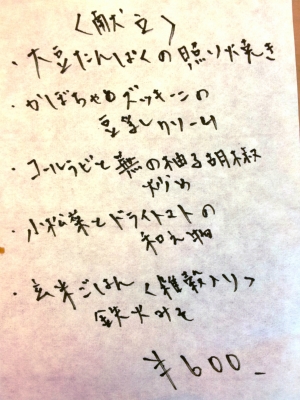 〈献立〉
・大豆たんぱくの照り焼き
・かぼちゃとズッキーニの
豆乳クリーム
・コールラビと蕪の柚子胡椒
炒め
・小松菜とドライトマトの
和え物
・玄米ごはん〈雑穀入り〉
鉄火みそ
¥600-